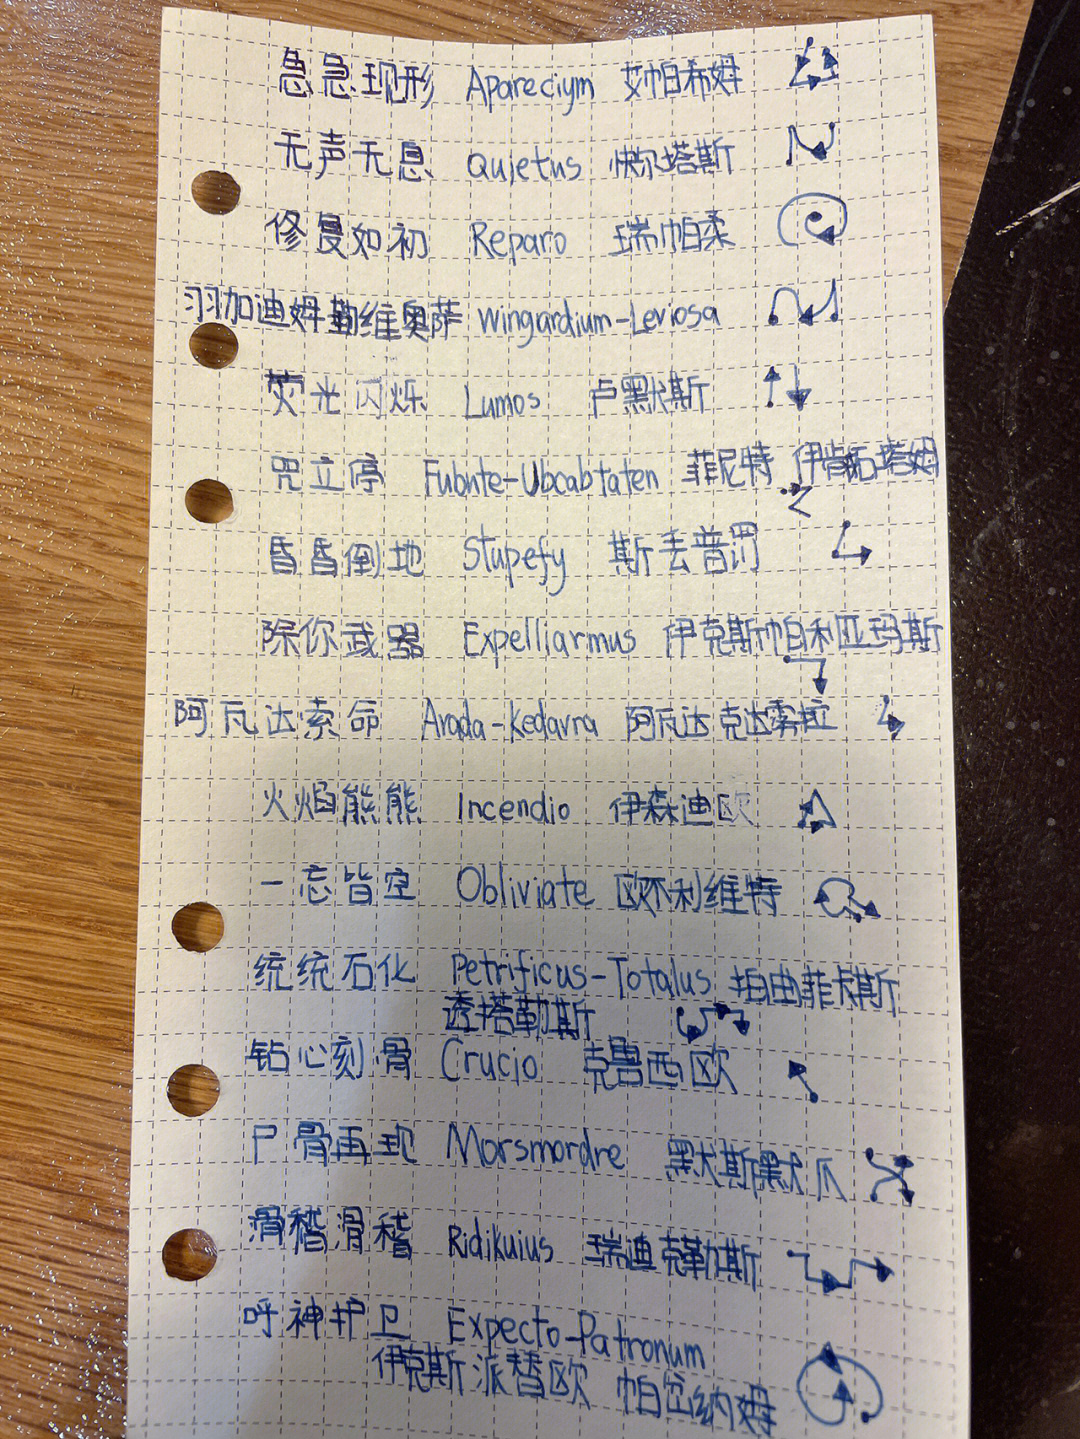 急急现形 Apareciym 艾帕希姆
无声无息 Quietus 快尔塔斯
修复如初 Reparo 瑞帕柔
羽加迪姆勒维奥萨 Wingardium-Leviosa
荧光闪烁 Lumos 卢默斯
咒立停 Fubnte-Ubcabtaten 菲尼特 伊肯石塔姆
昏昏倒地 Stupefy 斯丢普罚
除你武器 Expelliarmus 伊克斯帕利亚玛斯
阿瓦达索命 Avada-Kedavra 阿瓦达克达雾拉
火焰熊熊 Incendio 伊森迪欧
一忘皆空 Obliviate 欧不利维特
统统石化 Petrificus-Totalus 拍曲菲卡斯
透塔勒斯
钻心刻骨 Crucio 克鲁西欧
尸骨再现 Morsmordre 默斯默爪
滑稽滑稽 Ridikuius 瑞迪克勒斯
呼神护卫 Expecto-Patronum
伊克斯派替欧 帕岔纳姆